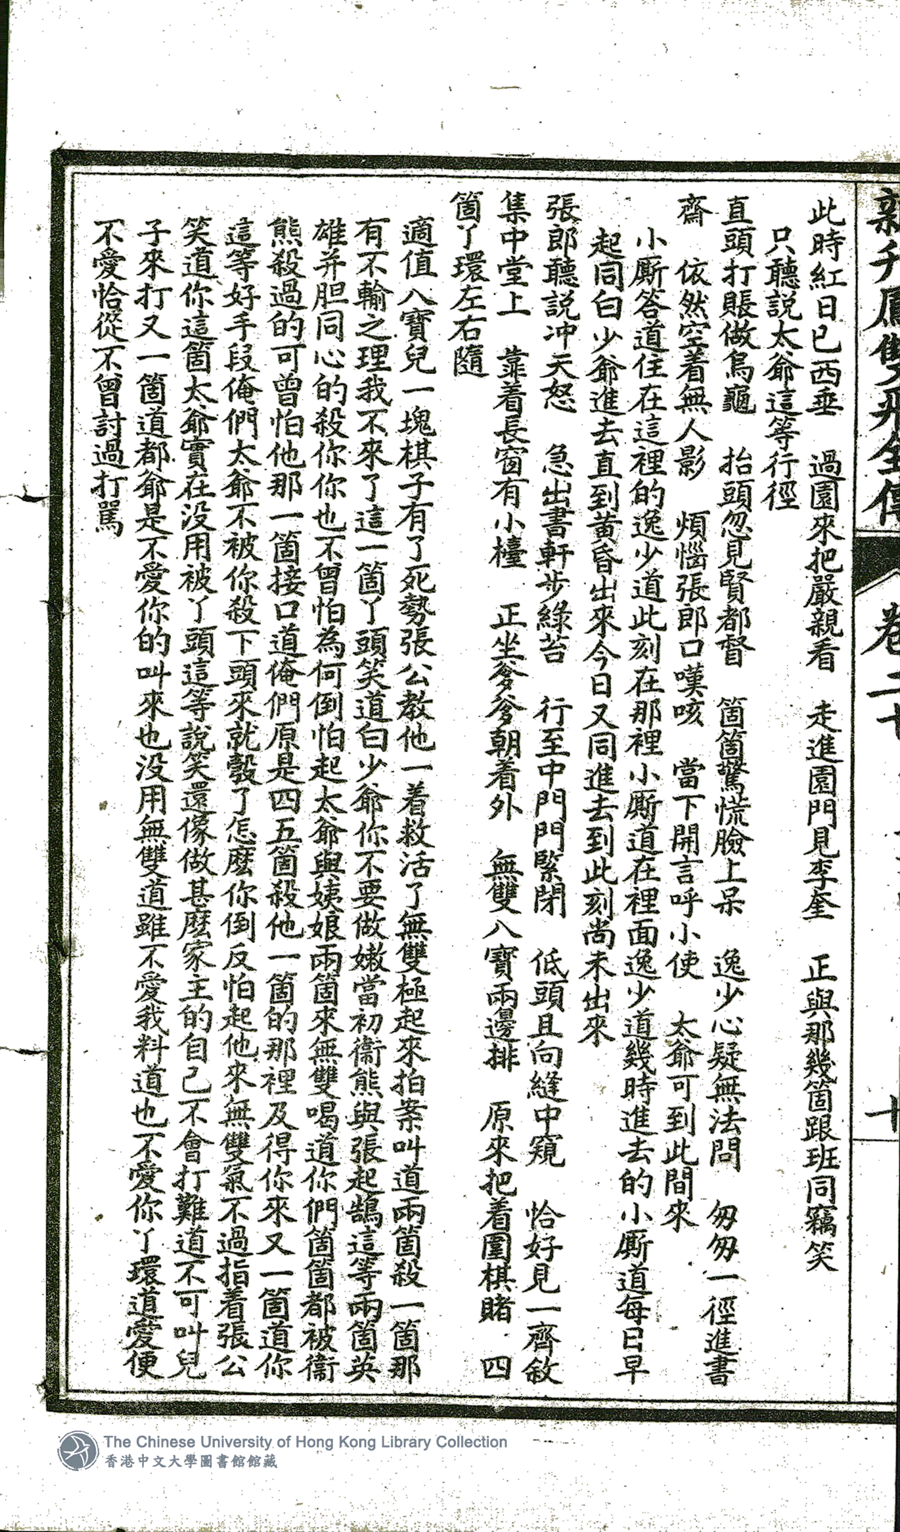 此時紅日已西垂　過園來把嚴親看　走進園門見李奎　正與那幾箇跟班同竊笑
只聽説太爺這等行徑
直頭打賬做烏龜　抬頭忽見賢都督　箇箇驚慌臉上呆　逸少心疑無法問　匆匆一徑進書
齋　依然空着無人影　煩惱張郎口嘆咳　當下開言呼小使　太爺可到此間來
小厮答道住在這裡的逸少道此刻在那裡小厮道在裡面逸少道幾時進去的小厮道每日早
起同白少爺進去直到黄昏出來今日又同進去到此刻尚未出來
張郎聽説冲天怒　急出書軒步綠苔　行至中門門緊閉　低頭且向縫中窺　恰好見一齊敘
集中堂上　靠着長窗有小檯　正坐爹爹朝着外　無雙八寶兩邊排　原來把着圍棋賭　四
箇丫環左右隨
適值八寶兒一塊棋子有了死勢張公教他一着救活了無雙極起來拍案叫道兩箇殺一箇那
有不輸之理我不來了這一箇丫頭笑道白少爺你不要做嫩當初衞熊與張起鵠這等兩箇英
雄并胆同心的殺你你也不曾怕為何倒怕起太爺與姨娘兩箇來無雙喝道你們箇箇都被衞
熊殺過的可曾怕他那一箇接口道俺們原是四五箇殺他一箇的那裡及得你來又一箇道你
這等好手段俺們太爺不被你殺下頭來就彀了怎麽你倒反怕起他來無雙氣不過指着張公
笑道你這箇太爺實在没用被丫頭這等說笑還像做甚麽家主的自己不會打難道不可叫兒
子來打又一箇道都爺是不愛你的叫來也没用無雙道雖不愛我料道也不愛你丫環道愛便
不愛恰從不曾討過打罵
卷二十
十
The Chinese University of Hong Kong Library Collection
香港中文大學圖書館館藏